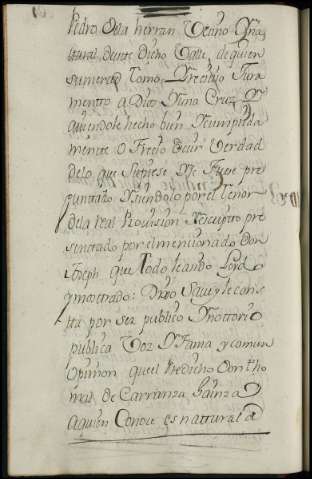 Pedro dela herran Vecino Y na
tural deeste dicho Valle de quien
sumerced Tomo Y recivio Jura
mento a Dios Y una Cruz Y
aviendole hecho bien Y cumplida
mente Ofrecio Decir Verdad
delo que Supiese Y le fuese pre
guntado Y siendolo por el tenor
dela real Provision Y Rescripto pre
sentado por el mencionado Don
Joseph que todo leanbo Leydo
y mostrado: Dixo Save y le cons
ta por ser publico Y nottorio
publica Voz Y Fama y comun
Opinion quel Redicho Don tho
mas de Carranza Sainza
aquien Conoce es nattural de